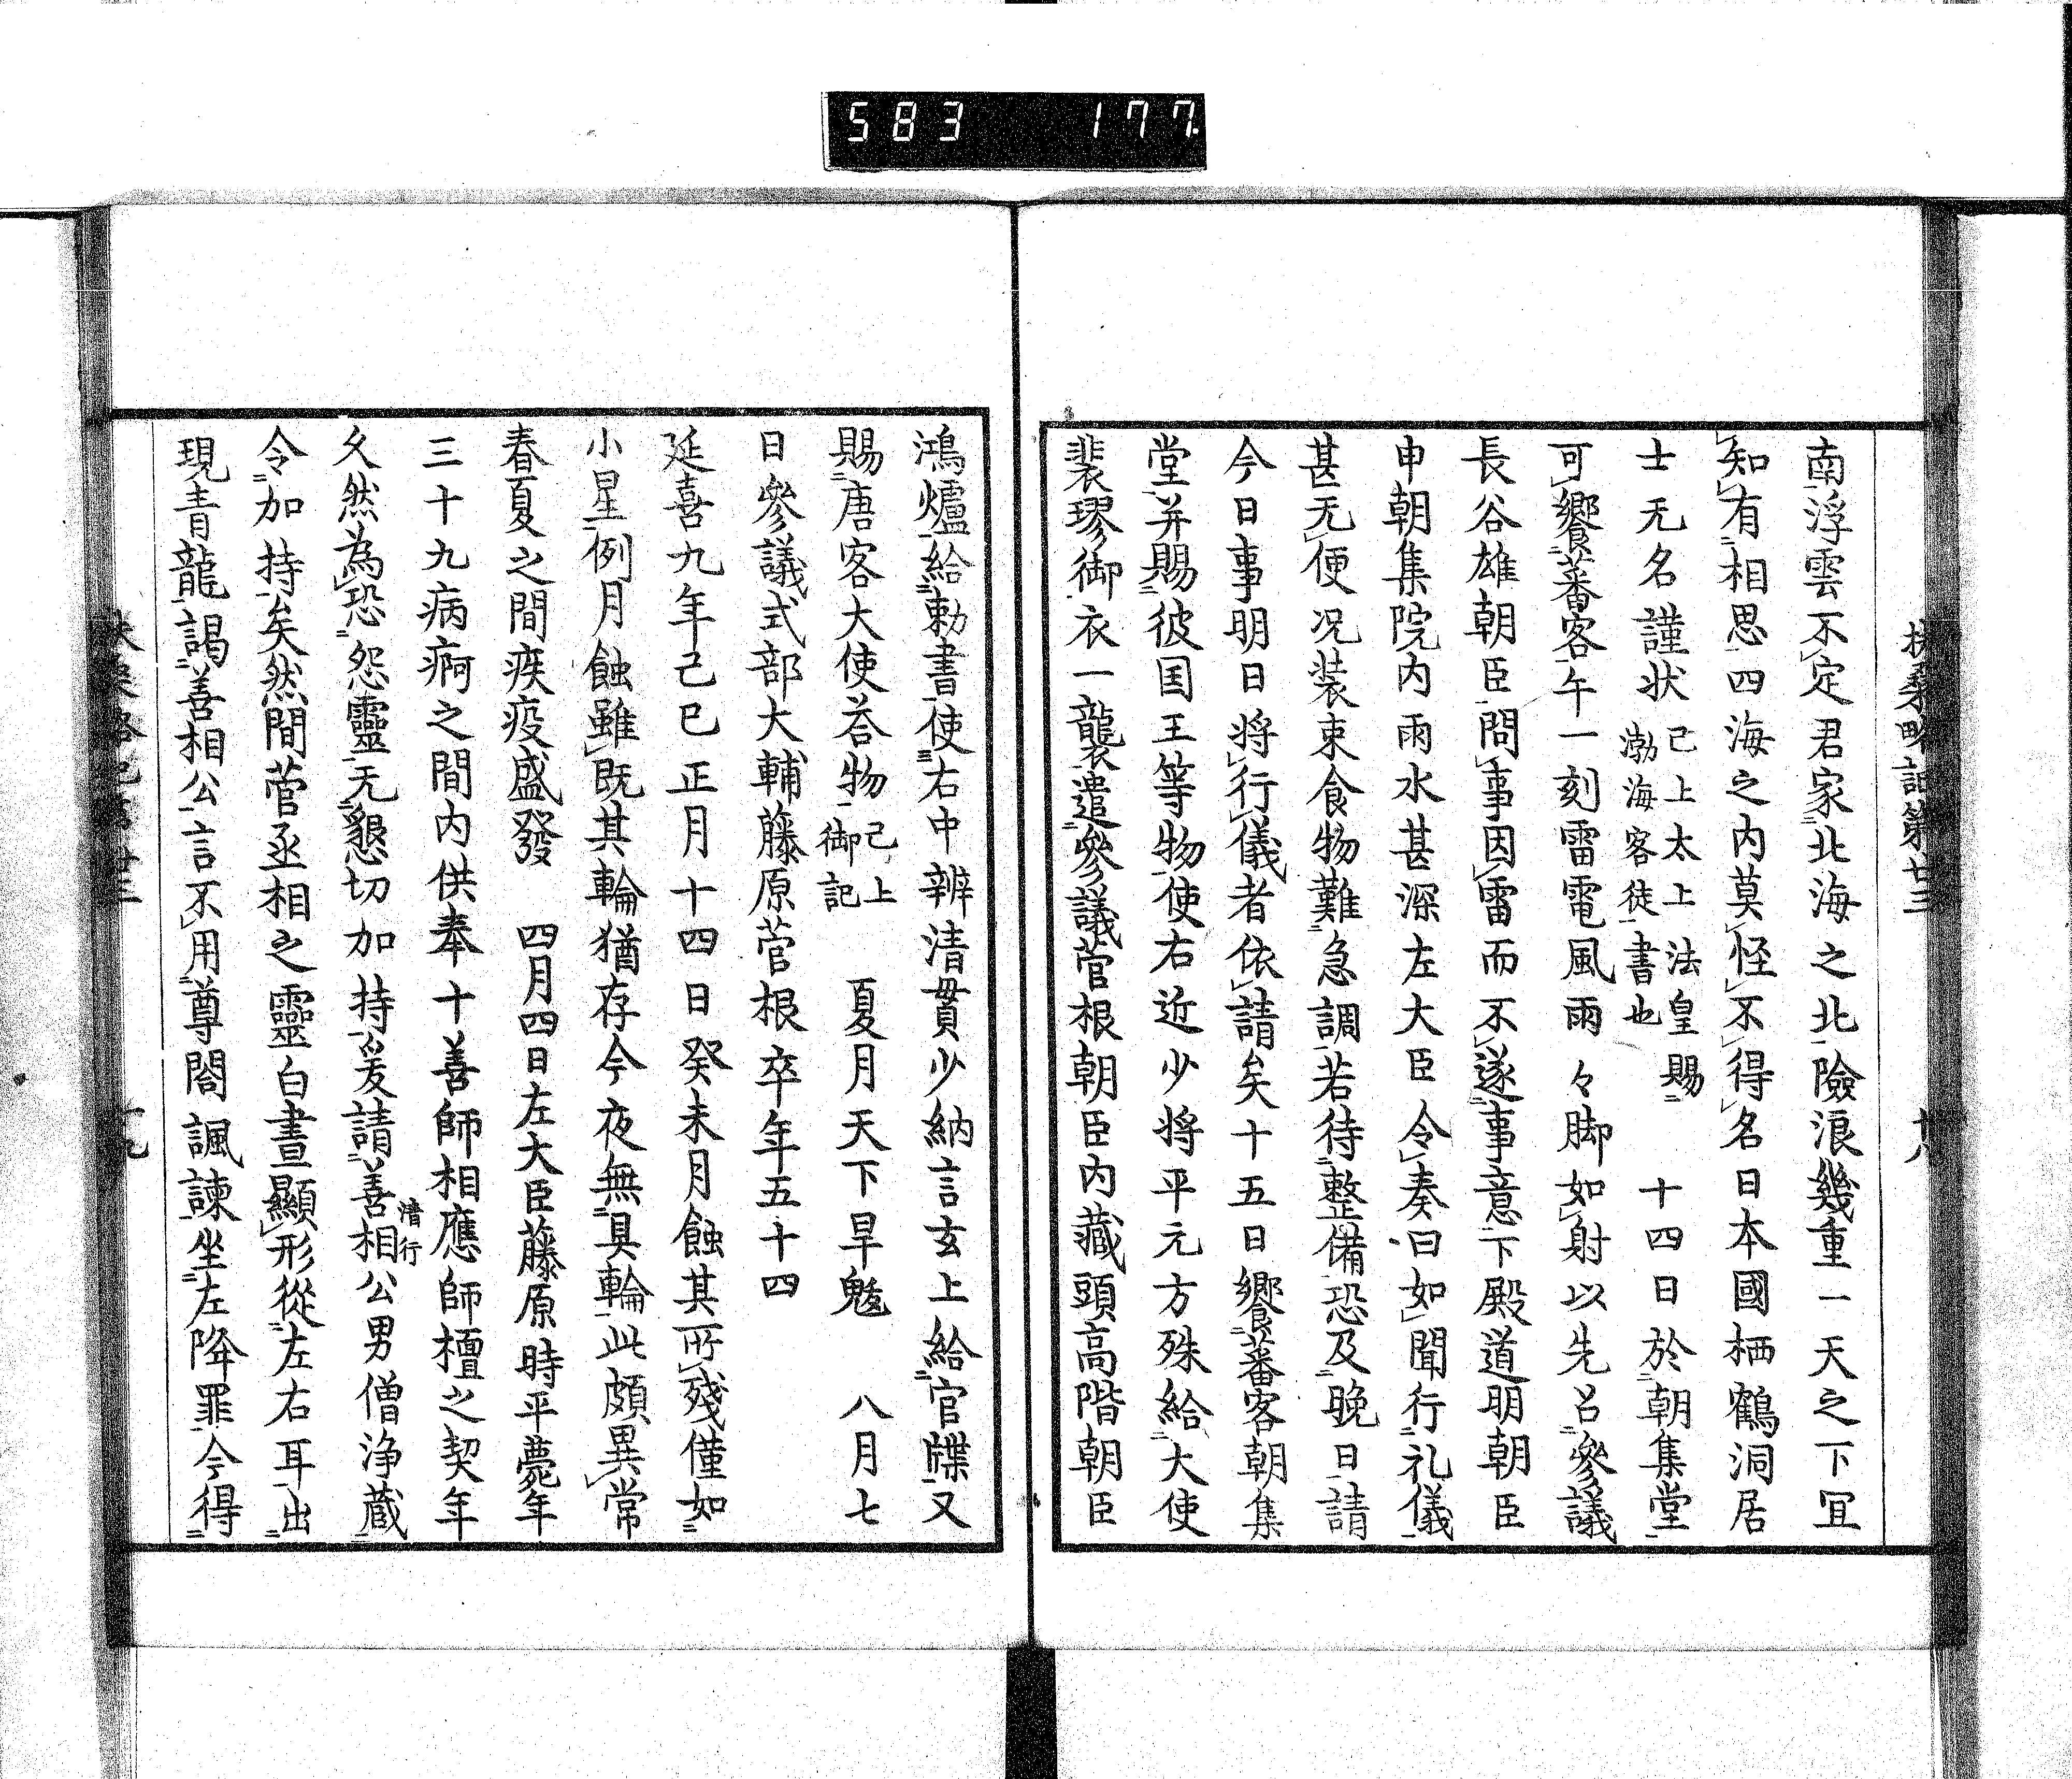 583 177
扶桑略記第廿三 十八
南浮雲不定君家北海之北險浪幾重一天之下冝
知有相思四海之内莫怪不得名日本國栖鶴洞居
士无名謹状 己上太上法皇賜
渤海客徒書也 十四日於朝集堂
可饗蕃客午一刻雷電風雨々脚如射以先召參議
長谷雄朝臣問事因雷而不遂事意下殿道明朝臣
申朝集院内雨水甚深左大臣令奏曰如聞行礼儀
甚无便况装束食物難急調若待整備恐及晩日請
今日事明日将行儀者依請矣十五日饗蕃客朝集
堂并賜彼国王等物使右近少将平元方殊給大使
裴璆御衣一襲遣參議菅根朝臣内藏頭高階朝臣
鴻爐給勅書使右中辨清貫少納言玄上給官牒又
賜唐客大使荅物 己上
御記 夏月天下旱魃 八月七
日參議式部大輔藤原菅根卒年五十四
延喜九年己巳正月十四日癸未月蝕其所殘僅如
小星例月蝕雖既其輪猶存今夜無具輪此頗異常
春夏之間疾疫盛發 四月四日左大臣藤原時平薨年
三十九病痾之間内供奉十善師相應師檀之契年
久然為恐怨靈无懇切加持爰請善相公男僧浄蔵
清行
令加持矣然間菅丞相之靈白晝顯形從左右耳出
現青龍謁善相公言不用尊閤諷諫坐左降罪今得
扶桑略記第廿三 十九